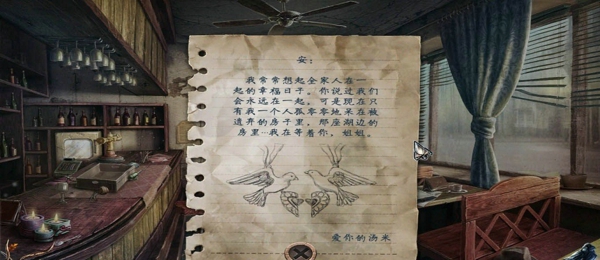 安：
我常常想起全家人在一
起的幸福日子。你说过我们
会永远在一起。可是现在只
有我一个人孤零零地呆在被
遗弃的房子里，那座湖边的
房里…我在等着你，姐姐。
爱你的汤米